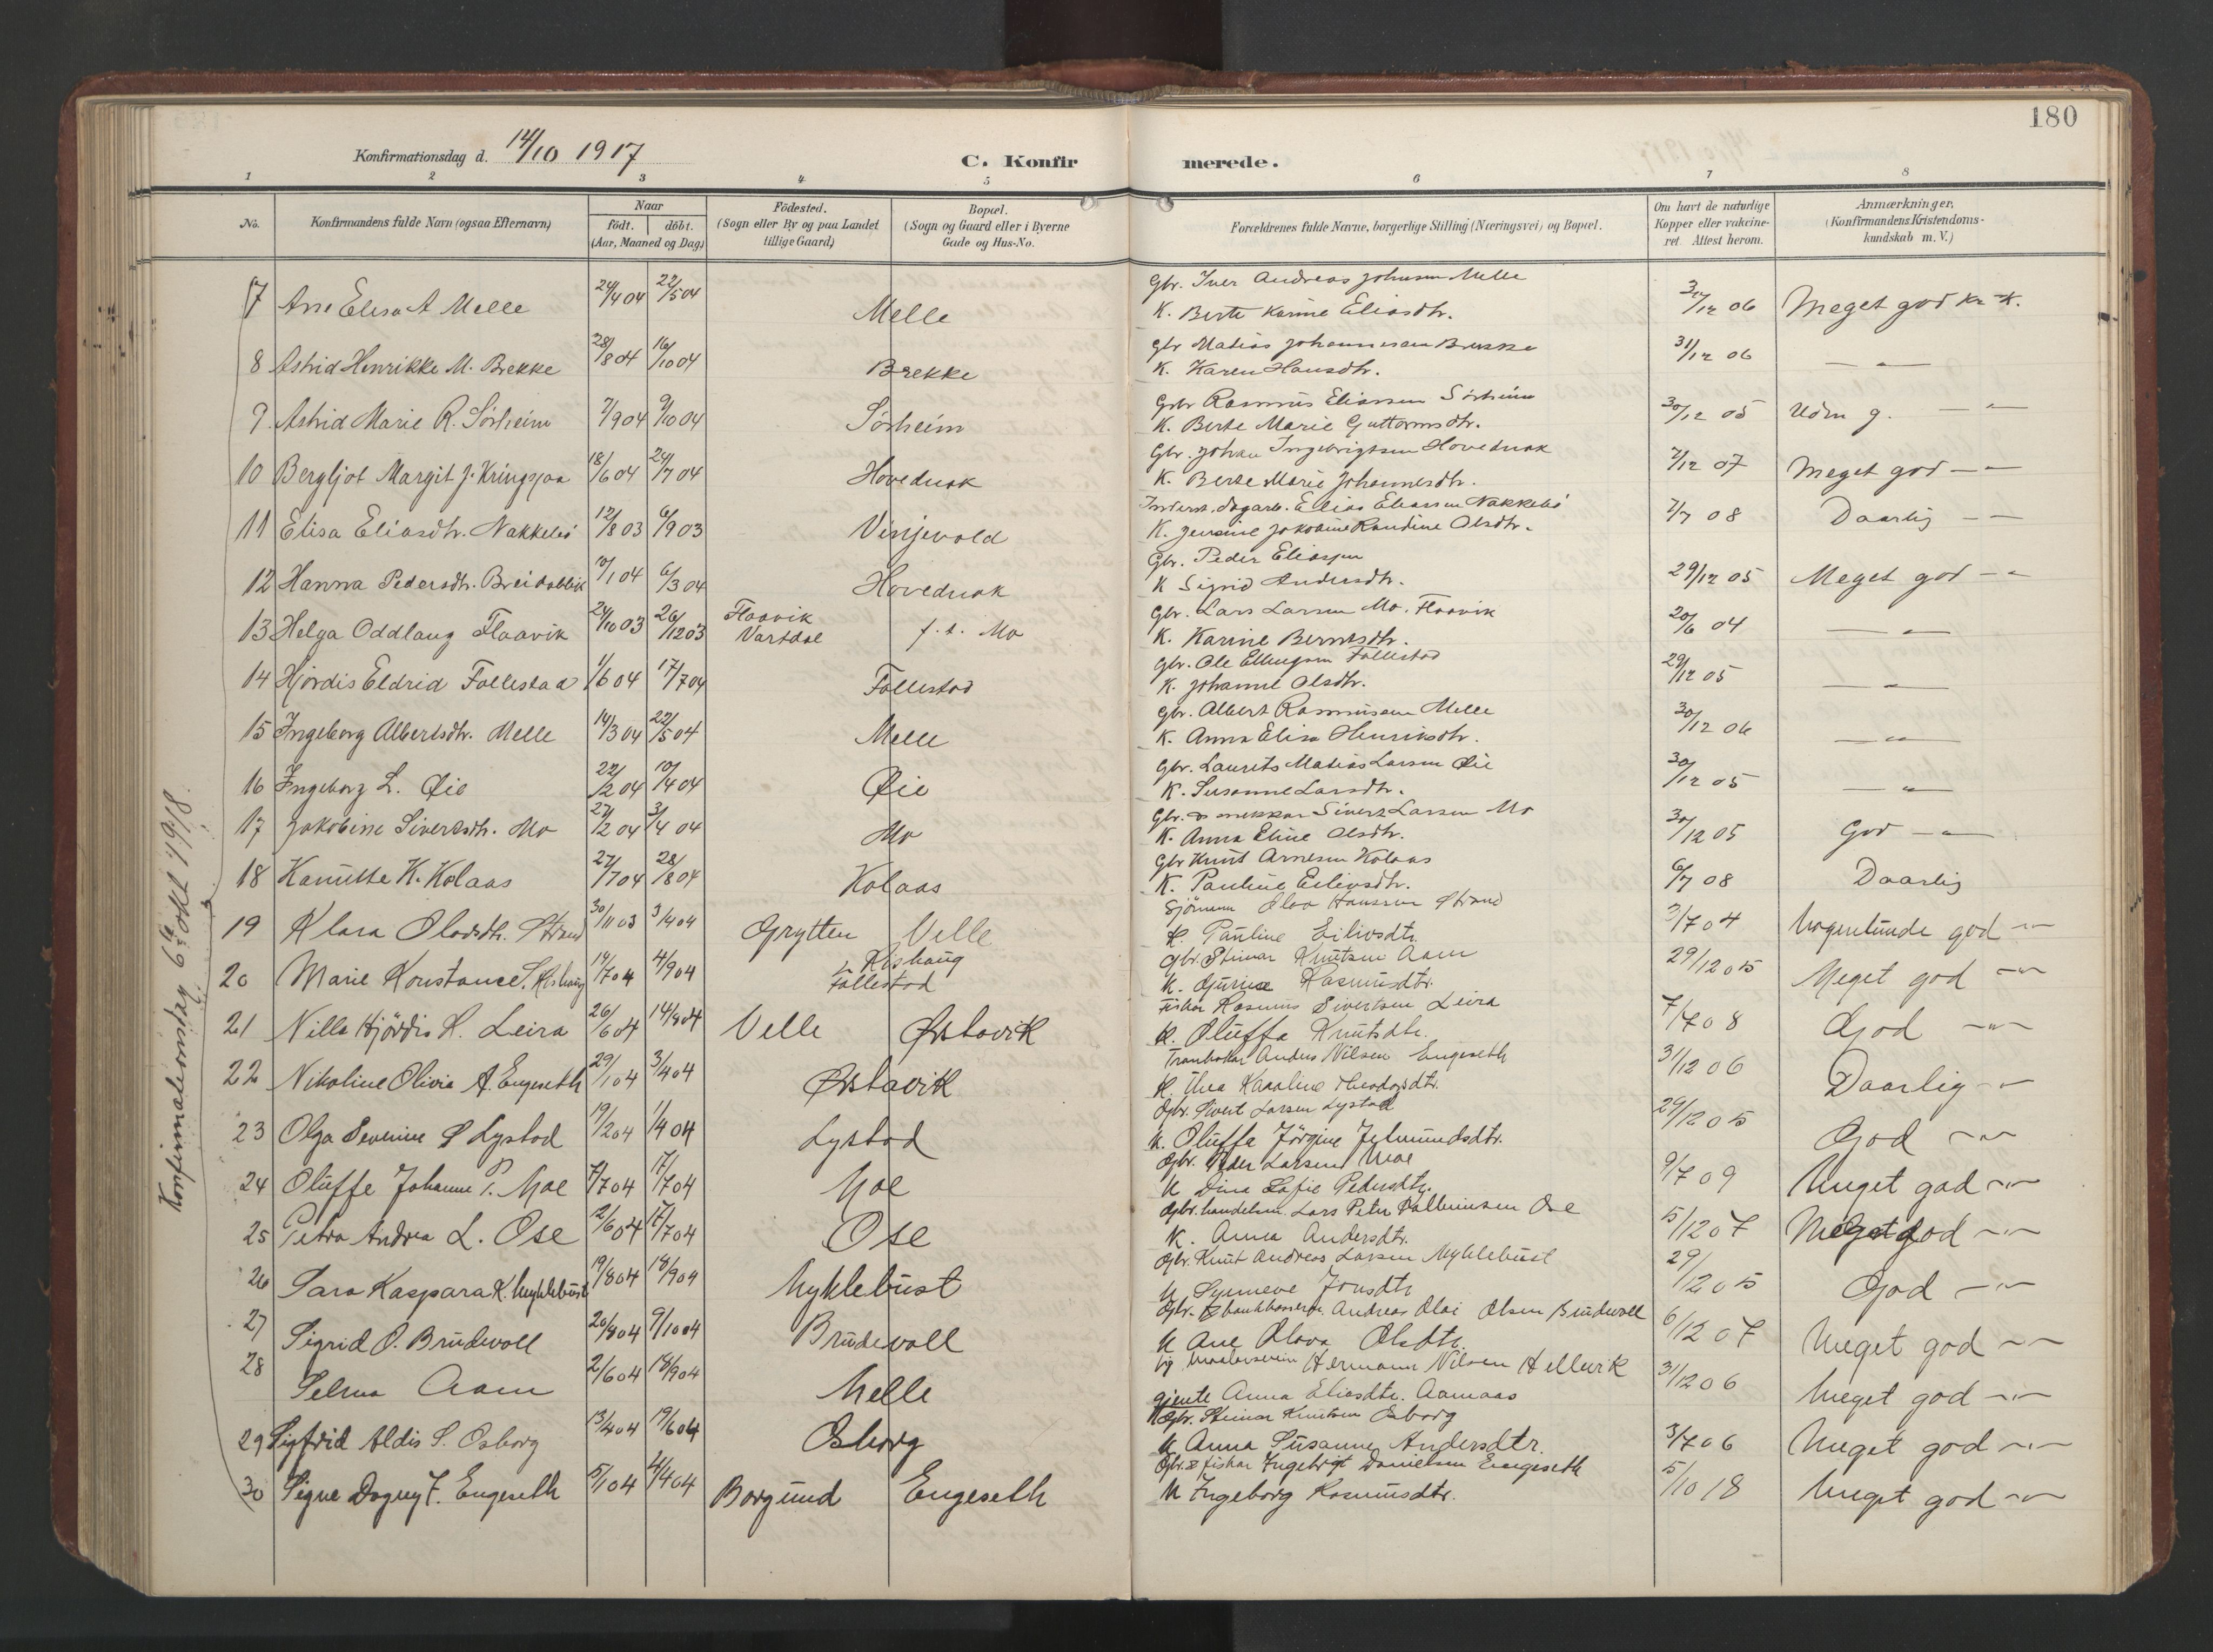 180
Konfirmationsdag d. 14/10 1917
C. Konfirmerede.
1 2 3 4 5 6 7 8
No.
Konfirmandens fulde Navn (ogsaa Efternavn)
Naar
födt. döbt.
(Aar, Maaned og Dag)
Födested.
(Sogn eller By og paa Landet
tillige Gaard)
Bopæl.
(Sogn og Gaard eller i Byerne
Gade og Hus-No.
Forældrenes fulde Navne, borgerlige Stilling (Næringsvei) og Bopæl.
Om havt de naturlige
Kopper eller vakcine-
ret. Attest herom.
Anmærkninger,
(Konfirmandens Kristendoms-
kundskab m. V.)
Konfirmationsdag 6te okt 1918.
Gbr. Iver Andreas Johnsen Melle
7 Ane Elisa A Melle 24/4 04 22/5 04 Melle K. Berte Karine Eliasdtr. 30/12 06 Meget god Kr. K.
Gbr Matias Johannesen Brekke
8 Astrid Henrikke M. Brekke 28/8 04 16/10 04 Brekke K. Karen Hansdtr. 31/12 06 — " —
Gbr Rasmus Eliassen Sörheim
9. Astrid Marie R. Sörheim 7/9 04 9/10 04 Sörheim K. Berte Marie Guttormsdtr. 30/12 05 Udm g. — " —
Gbr. Johan Ingebrigtsen Hovednak
10 Bergljot Margit J. Kringsjaa 18/6 04 24/7 04 Hovednak K. Berte Marie Johannesdtr. 7/12 07 Meget god — " —
Inderst. dagarb. Elias Eliassen Nakkebö
11 Elisa Eliasdtr. Nakkebö 12/8 03 6/9 03 Vinjevold K. Jensine Jakobine Randine Olsdtr. 7/7 08 Daarlig — " —
Gbr. Peder Eliassen
12 Hanna Pedersdtr. Breidablik 10/1 04 6/3 04 Hovednak K Sigrid Andersdtr. 29/12 05 Meget god — " —
Gbr. Lars Larsen Mo. Flaavik
13 Helga Oddlaug Flaavik 24/10 03 26/12 03 Flaavik Vartdal f. t. Mo K. Karine Berntsdtr. 20/6 04 — " —
Gbr. Ole Ellingsen Follestad
14 Hjördis Eldrid Follestad 1/6 04 17/7 04 Follestad K. Johanne Olsdtr. 29/12 05 — " —
Gbr. Albert Rasmussen Melle
15 Ingeborg Albertsdtr. Melle 14/3 04 22/5 04 Melle K. Anna Elisa Henriksdtr. 30/12 06 — " —
Gbr. Laurits Matias Larsen Øie
16 Ingeborg L. Øie 22/2 04 10/4 04 Øie K. Susanne Larsdtr. 30/12 05 — " —
Gbr. Sivert Larsen Mo
17 Jakobine Sivertsdtr. Mo 27/2 04 3/4 04 Mo K. Anna Eline Olsdtr. 30/12 05 God — " —
Gbr Knut Arnesen Kolaas
18 Kanutte K. Kolaas 27/7 04 28/8 04 Kolaas K. Pauline Eilivsdtr. 6/7 08 Daarlig
Sjömann Olav Hanssen Strand
19 Klara Olavsdtr. Strand 30/11 03 3/4 04 Grytten Velle K. Pauline Eilivsdtr. 3/7 04 Nogenlunde god — " —
Gbr Steinar Knutsen Aam
20 Marie Konstance S. Rishaug 14/7 04 4/9 04 Rishaug Follestad K. Gurine Rasmusdtr. 29/12 05 Meget god — " —
Fisker Rasmus Sivertsen Leira
21 Nilla Hjördis R. Leira 26/6 04 14/8 04 Velle Ørstavik K. Oluffa Knutsdtr. 7/7 08 God — " —
Tranbokar Anders Nilsen Engeseth
22 Nikoline Olivia A. Engeseth 29/1 04 3/4 04 Ørstavik K. Thea Karoline 31/12 06 Daarlig — " —
Gbr. Sivert Larsen Lystad
23 Olga Severine S Lystad 19/2 04 1/4 04 Lystad K. Oluffa Jörgine Jetmundsdtr. 29/12 05 God — " —
Gbr. Peder Larsen Moe
24 Oluffe Johanne P. Moe 7/7 04 17/7 04 Moe K Dina Sofie Pedersdtr. 9/7 09 Meget god — " —
Gbr. handelsm. Lars Peter Ose
25 Petra Andrea L. Ose 12/6 04 17/7 04 Ose K. Anna Andersdtr. 5/12 07 Meget god — " —
Gbr. Knut Andreas Larsen Myklebust
26 Sara Kaspara K. Myklebust 19/8 04 18/9 04 Myklebust K Synneve Jonsdtr 29/12 05 God — " —
Gbr. & bankkasserer Andreas Olai Olsen Brudevoll
27 Sigrid O. Brudevoll 20/8 04 9/10 04 Brudevoll K Ane Olava Olsdtr. 6/12 07 Meget god — " —
Hermann Nilsen Hellevik
28 Selma Aam 2/6 04 18/9 04 Melle gjente Anna Eliasdtr. Aamaas 31/12 06 Meget god — " —
Gbr. Steinar Knutsen Osborg
29 Sigfrid Aldis S. Osborg 13/4 04 19/6 04 Osborg K Anna Susanne Andersdtr. 3/7 06 Meget god — " —
Gbr. & fisker Ingebrigt Danielsen Engeseth
30 Signe Dagny I. Engeseth 5/1 04 4/4 04 Borgund Engeseth K Ingeborg Rasmusdtr. 5/10 18 Meget god — " —